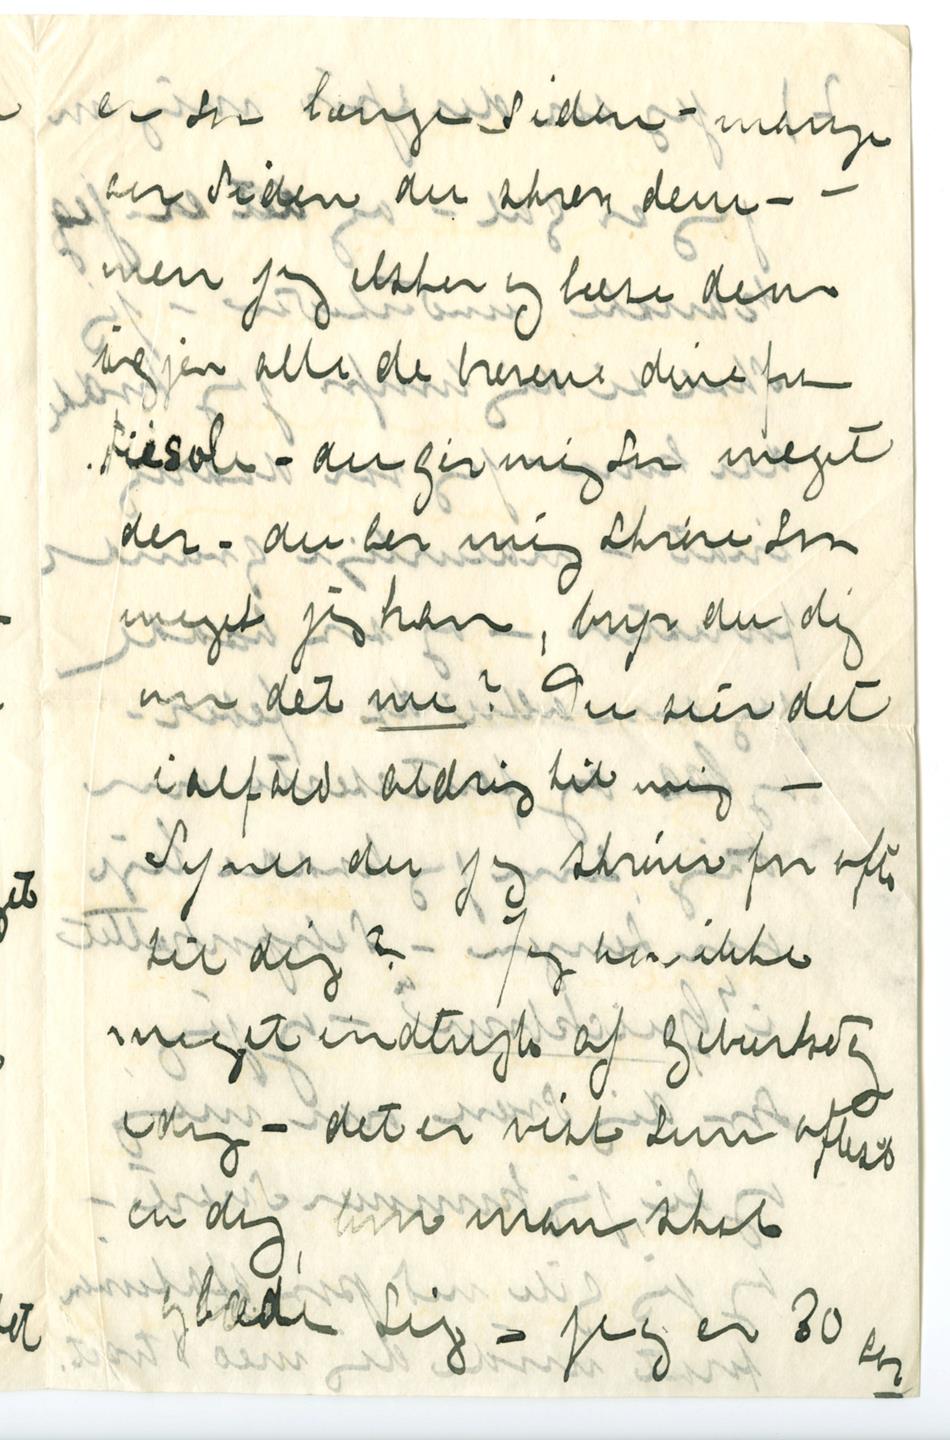 er saa længe siden - mange
aar siden du skrev dem - -
men jeg elsker og læse dem
igjen alle de brevene dine fra
Fiesole - du gir mig saa meget
der - du ber mig skrive saa
meget jeg kan, bryr du dig
om det nu? Du sier det
ialfald aldrig til mig -
Synes du jeg skriver for ofte
til dig? Jeg har ikke
meget indtryk af Geburtsdag
idag - det er vist som oftest
en dag, man skal
glæde sig - jeg er 30 aar